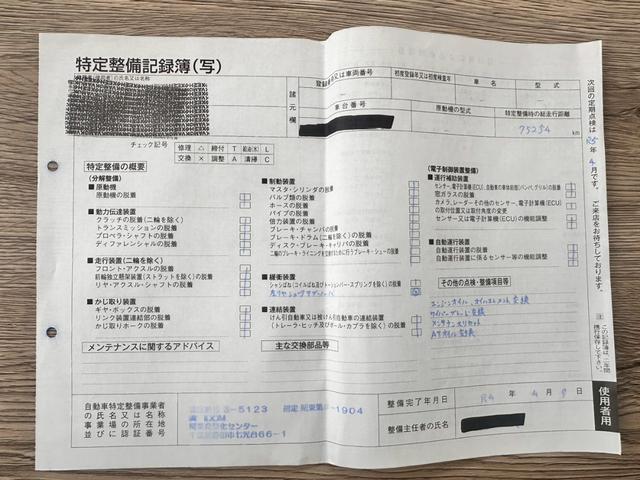 特定整備記録簿(写)
の氏名又は名称
登録番号又は車両番号
初度登録年又は初度検査年
車名
型式
諸元欄
車台番号
原動機の型式
特定整備時の総走行距離
75254 km
チェック記号
修理 △ 締付 T 給油(水) L
交換 × 調整 A 清掃 C
特定整備の概要
(分解整備)
■原動機
原動機の脱着
■動力伝達装置
クラッチの脱着(二輪を除く)
トランスミッションの脱着
プロペラ・シャフトの脱着
ディファレンシャルの脱着
■走行装置(二輪を除く)
フロント・アクスルの脱着
前輪独立懸架装置(ストラットを除く)の脱着
リヤ・アクスル・シャフトの脱着
■かじ取り装置
ギヤ・ボックスの脱着
リンク装置連結部の脱着
かじ取りホークの脱着
■制動装置
マスタ・シリンダの脱着
バルブ類の脱着
ホースの脱着
パイプの脱着
倍力装置の脱着
ブレーキ・チャンバの脱着
ブレーキ・ドラム(二輪を除く)の脱着
ディスク・ブレーキ・キャリパの脱着
二輪のブレーキ・ライニングを交換するために行うブレーキ・シューの脱着
■緩衝装置
シャシばね(コイルばね及びトーションバー・スプリングを除く)の脱着
■連結装置
けん引自動車又は被けん引自動車の連結装置
(トレーラ・ヒッチ及びボール・カプラを除く)の脱着
(電子制御装置整備)
■運行補助装置
センサー、電子計算機(ECU)、自動車の車体前部(バンパ、グリル)の脱着
窓ガラスの脱着
カメラ、レーダーその他のセンサー、電子計算機(ECU)
の取付位置又は取付角度の変更
センサー又は電子計算機(ECU)の機能調整
■自動運行装置
自動運行装置の脱着
自動運行装置に係るセンサー等の機能調整
その他の点検・整備項目等
エンジンオイル、オイルエレメント交換
ワイパーブレード交換
メンテナンスリセット
ATオイル交換
メンテナンスに関するアドバイス
主な交換部品等
自動車特定整備事業者
の氏名又は名称
事業場の所在地
並びに認証番号
3-5123
1904
IDOM
センター
66-1
整備完了年月日
R4 年 4 月 日
整備主任者の氏名
次回の定期点検は R5 年 4 月です。ご来店をお待ちしております。
注 この記録簿は、二年間携行保存して下さい。
使用者用